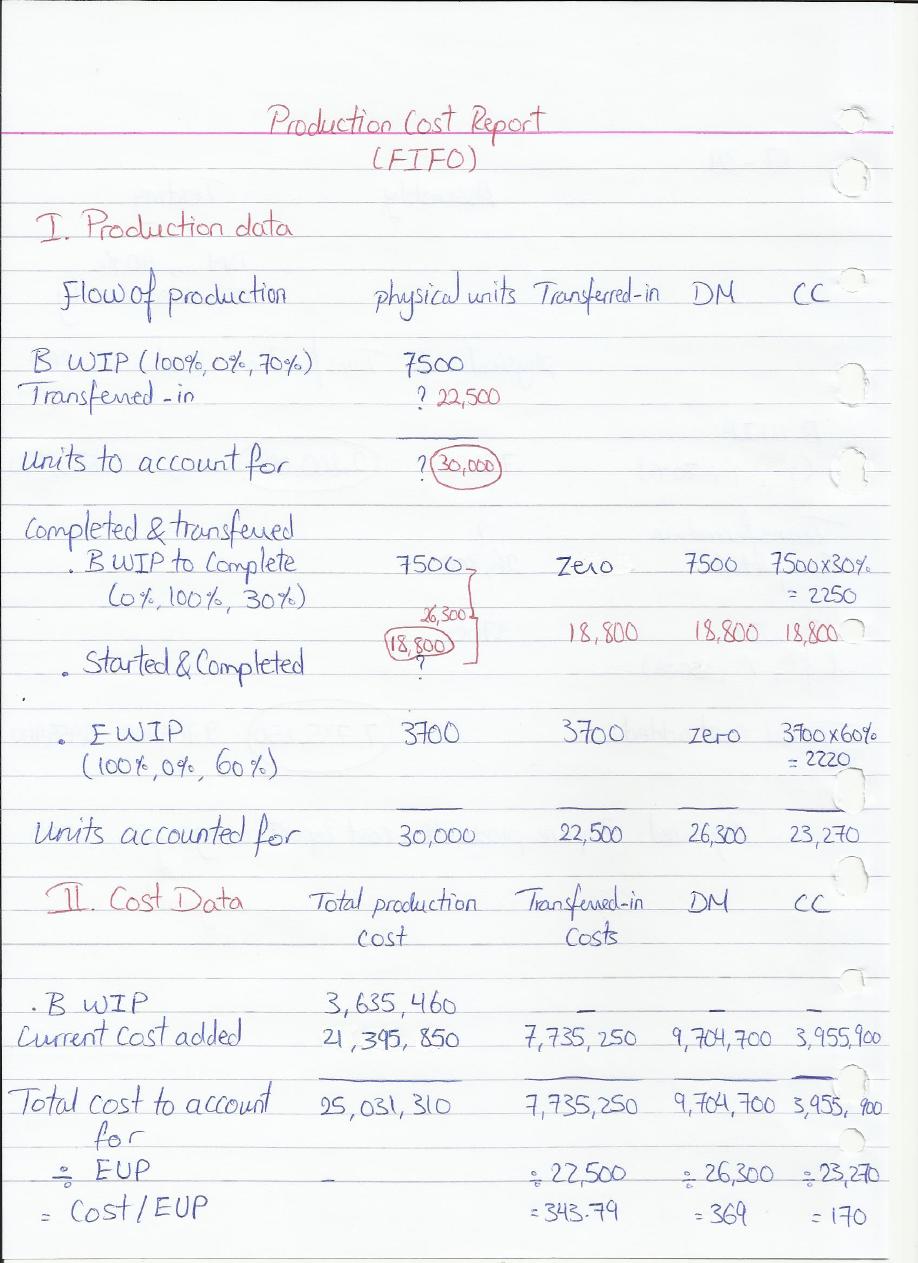 Production Cost Report
(FIFO)
I. Production data
Flow of production physical units Transferred-in DM CC
B WIP (100%, 0%, 70%) 7500
Transferred-in ? 22,500
Units to account for ? 30,000
Completed & transferred
. B WIP to Complete 7500 Zero 7500 7500x30%
(0%, 100%, 30%) = 2250
26,300
18,800 18,800 18,800 18,800
. Started & Completed ?
. EWIP 3700 3700 Zero 3700x60%
(100%, 0%, 60%) = 2220
Units accounted for 30,000 22,500 26,300 23,270
II. Cost Data Total production Transferred-in DM CC
cost Costs
. B WIP 3,635,460 – – –
Current cost added 21,395,850 7,735,250 9,704,700 3,955,900
Total cost to account 25,031,310 7,735,250 9,704,700 3,955,900
for
÷ EUP – ÷ 22,500 ÷ 26,300 ÷ 23,270
= Cost/EUP = 343.79 = 369 = 170